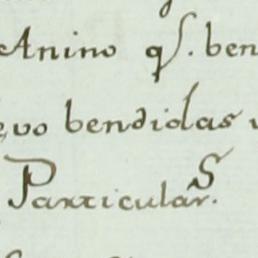 Anino qͤ. ben
evo bendiolas v
Particular.ˢ